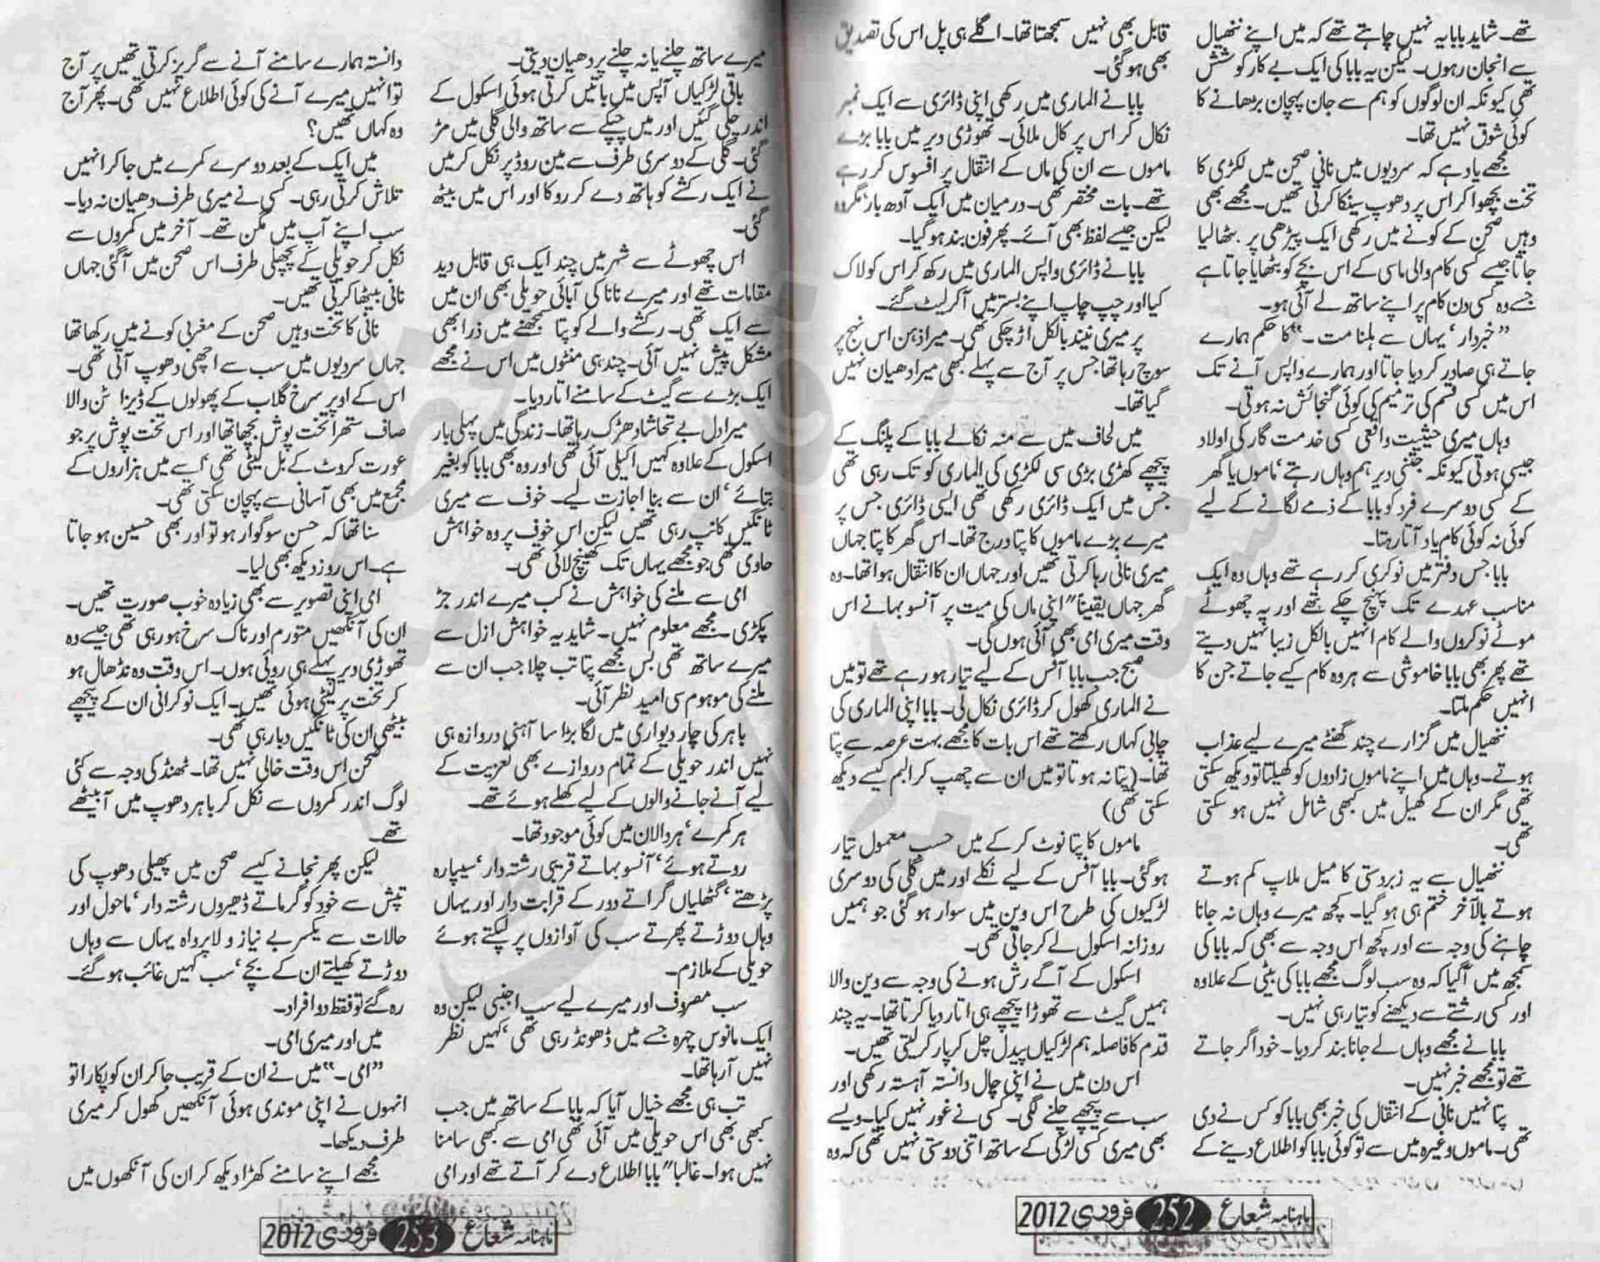 تھے۔ شاید بابا یہ نہیں چاہتے تھے کہ میں اپنے ننھیال
سے انجان رہوں۔ لیکن یہ بابا کی ایک بے کار کوشش
تھی کیونکہ ان لوگوں کو ہم سے جان پہچان بڑھانے کا
کوئی شوق نہیں تھا۔
مجھے یاد ہے کہ سردیوں میں نانی صحن میں لکڑی کا
تخت بچھوا کر اس پر دھوپ سینکا کرتی تھیں۔ مجھے بھی
وہیں صحن کے کونے میں رکھی ایک پیڑھی پر بٹھا لیا
جاتا جیسے کسی کام والی ماسی کے اس بچے کو بٹھایا جاتا ہے
جسے وہ کسی دن کام پر اپنے ساتھ لے آئی ہو۔
”خبردار‘ یہاں سے ہلنا مت۔“ کا حکم ہمارے
جاتے ہی صادر کر دیا جاتا اور ہمارے واپس آنے تک
اس میں کسی قسم کی ترمیم کی کوئی گنجائش نہ ہوتی۔
وہاں میری حیثیت واقعی کسی خدمت گار کی اولاد
جیسی ہوتی کیونکہ جتنی دیر ہم وہاں رہتے‘ ماموں یا گھر
کے کسی دوسرے فرد کو بابا کے ذمے لگانے کے لیے
کوئی نہ کوئی کام یاد آتا رہتا۔
بابا جس دفتر میں نوکری کر رہے تھے وہاں وہ ایک
مناسب عہدے تک پہنچ چکے تھے اور یہ چھوٹے
موٹے نوکروں والے کام انہیں بالکل زیبا نہیں دیتے
تھے پھر بھی بابا خاموشی سے ہر وہ کام کیے جاتے جن کا
انہیں حکم ملتا۔
ننھیال میں گزارے چند گھنٹے میرے لیے عذاب
ہوتے۔ وہاں میں اپنے ماموں زادوں کو کھیلتا تو دیکھ سکتی
تھی مگر ان کے کھیل میں کبھی شامل نہیں ہو سکتی
تھی۔
ننھیال سے یہ زبردستی کا میل ملاپ کم ہوتے
ہوتے بالآخر ختم ہی ہو گیا۔ کچھ میرے وہاں نہ جانا
چاہنے کی وجہ سے اور کچھ اس وجہ سے بھی کہ بابا کی
سمجھ میں آ گیا کہ وہ سب لوگ مجھے بابا کی بیٹی کے علاوہ
اور کسی رشتے سے دیکھنے کو تیار ہی نہیں۔
بابا نے مجھے وہاں لے جانا بند کر دیا۔ خود اگر جاتے
تھے تو مجھے خبر نہیں۔
پتا نہیں نانی کے انتقال کی خبر بھی بابا کو کس نے دی
تھی۔ ماموں وغیرہ میں سے تو کوئی بابا کو اطلاع دینے کے
قابل بھی نہیں سمجھتا تھا۔ اگلے ہی پل اس کی تصدیق
بھی ہو گئی۔
بابا نے الماری میں رکھی اپنی ڈائری سے ایک نمبر
نکال کر اس پر کال ملائی۔ تھوڑی دیر میں بابا بڑے
ماموں سے ان کی ماں کے انتقال پر افسوس کر رہے
تھے۔ بات مختصر تھی۔ درمیان میں ایک آدھ بار مگر وہ
لیکن جیسے لفظ بھی آئے۔ پھر فون بند ہو گیا۔
بابا نے ڈائری واپس الماری میں رکھ کر اس کو لاک
کیا اور چپ چاپ اپنے بستر میں آ کر لیٹ گئے۔
پر میری نیند بالکل اڑ چکی تھی۔ میرا ذہن اس نہج پر
سوچ رہا تھا جس پر آج سے پہلے کبھی میرا دھیان نہیں
گیا تھا۔
میں لحاف میں سے منہ نکالے بابا کے پلنگ کے
پیچھے کھڑی بڑی سی لکڑی کی الماری کو تک رہی تھی
جس میں ایک ڈائری رکھی تھی ایسی ڈائری جس پر
میرے بڑے ماموں کا پتا درج تھا۔ اس گھر کا پتا جہاں
میری نانی رہا کرتی تھیں اور جہاں ان کا انتقال ہوا تھا۔ وہ
گھر جہاں یقیناً ”اپنی ماں کی میت پر آنسو بہانے اس
وقت میری امی بھی آئی ہوں گی۔
صبح جب بابا آفس کے لیے تیار ہو رہے تھے تو میں
نے الماری کھول کر ڈائری نکال لی۔ بابا اپنی الماری کی
چابی کہاں رکھتے تھے اس بات کا مجھے بہت عرصہ سے پتا
تھا۔ (پتا نہ ہوتا تو میں ان سے چھپ کر البم کیسے دیکھ
سکتی تھی)
ماموں کا پتا نوٹ کر کے میں حسب معمول تیار
ہو گئی۔ بابا آفس کے لیے نکلے اور میں گلی کی دوسری
لڑکیوں کی طرح اس وین میں سوار ہو گئی جو ہمیں
روزانہ اسکول لے کر جاتی تھی۔
اسکول کے آگے رش ہونے کی وجہ سے وین والا
ہمیں گیٹ سے تھوڑا پیچھے ہی اتار دیا کرتا تھا۔ یہ چند
قدم کا فاصلہ ہم لڑکیاں پیدل چل کر پار کر لیتی تھیں۔
اس دن میں نے اپنی چال دانستہ آہستہ رکھی اور
سب سے پیچھے چلنے لگی۔ کسی نے غور نہیں کیا۔ ویسے
بھی میری کسی لڑکی کے ساتھ اتنی دوستی نہیں تھی کہ وہ
ماہنامہ شعاع 252 فروری 2012
میرے ساتھ چلنے یا نہ چلنے پر دھیان دیتی۔
باقی لڑکیاں آپس میں باتیں کرتی ہوئی اسکول کے
اندر چلی گئیں اور میں چپکے سے ساتھ والی گلی میں مڑ
گئی۔ گلی کے دوسری طرف سے مین روڈ پر نکل کر میں
نے ایک رکشے کو ہاتھ دے کر روکا اور اس میں بیٹھ
گئی۔
اس چھوٹے سے شہر میں چند ایک ہی قابل دید
مقامات تھے اور میرے نانا کی آبائی حویلی بھی ان میں
سے ایک تھی۔ رکشے والے کو پتا سمجھنے میں ذرا بھی
مشکل پیش نہیں آئی۔ چند ہی منٹوں میں اس نے مجھے
ایک بڑے سے گیٹ کے سامنے اتار دیا۔
میرا دل بے تحاشا دھڑک رہا تھا۔ زندگی میں پہلی بار
اسکول کے علاوہ کہیں اکیلی آئی تھی اور وہ بھی بابا کو بغیر
بتائے‘ ان سے بنا اجازت لیے۔ خوف سے میری
ٹانگیں کانپ رہی تھیں لیکن اس خوف پر وہ خواہش
حاوی تھی جو مجھے یہاں تک کھینچ لائی تھی۔
امی سے ملنے کی خواہش نے کب میرے اندر جڑ
پکڑی۔ مجھے معلوم نہیں۔ شاید یہ خواہش ازل سے
میرے ساتھ تھی بس مجھے پتا تب چلا جب ان سے
ملنے کی موہوم سی امید نظر آئی۔
باہر کی چار دیواری میں لگا بڑا سا آہنی دروازہ ہی
نہیں اندر حویلی کے تمام دروازے بھی تعزیت کے
لیے آنے جانے والوں کے لیے کھلے ہوئے تھے۔
ہر کمرے‘ ہر دالان میں کوئی موجود تھا۔
روتے ہوئے‘ آنسو بہاتے قریبی رشتہ دار‘ سیپارہ
پڑھتے‘ گٹھلیاں گراتے دور کے قرابت دار اور یہاں
وہاں دوڑتے پھرتے سب کی آوازوں پر لپکتے ہوئے
حویلی کے ملازم۔
سب مصروف اور میرے لیے سب اجنبی لیکن وہ
ایک مانوس چہرہ جسے میں ڈھونڈ رہی تھی‘ کہیں نظر
نہیں آ رہا تھا۔
تب ہی مجھے خیال آیا کہ بابا کے ساتھ میں جب
کبھی بھی اس حویلی میں آئی تھی امی سے کبھی سامنا
نہیں ہوا۔ غالبا“ بابا اطلاع دے کر آتے تھے اور امی
دانستہ ہمارے سامنے آنے سے گریز کرتی تھیں پر آج
تو انہیں میرے آنے کی کوئی اطلاع نہیں تھی۔ پھر آج
وہ کہاں تھیں؟
میں ایک کے بعد دوسرے کمرے میں جا کر انہیں
تلاش کرتی رہی۔ کسی نے میری طرف دھیان نہ دیا۔
سب اپنے آپ میں مگن تھے۔ آخر میں کمروں سے
نکل کر حویلی کے پچھلی طرف اس صحن میں آ گئی جہاں
نانی بیٹھا کرتی تھیں۔
نانی کا تخت وہیں صحن کے مغربی کونے میں رکھا تھا
جہاں سردیوں میں سب سے اچھی دھوپ آتی تھی۔
اس کے اوپر سرخ گلاب کے پھولوں کے ڈیزائن والا
صاف ستھرا تخت پوش بچھا تھا اور اس تخت پوش پر جو
عورت کروٹ کے بل لیٹی تھی‘ اسے میں ہزاروں کے
مجمع میں بھی آسانی سے پہچان سکتی تھی۔
سنا تھا کہ حسن سوگوار ہو تو اور بھی حسین ہو جاتا
ہے۔ اس روز دیکھ بھی لیا۔
امی اپنی تصویر سے بھی زیادہ خوب صورت تھیں۔
ان کی آنکھیں متورم اور ناک سرخ ہو رہی تھی جیسے وہ
تھوڑی دیر پہلے ہی روئی ہوں۔ اس وقت وہ نڈھال ہو
کر تخت پر لیٹی ہوئی تھیں۔ ایک نوکرانی ان کے پیچھے
بیٹھی ان کی ٹانگیں دبا رہی تھی۔
صحن اس وقت خالی نہیں تھا۔ ٹھنڈ کی وجہ سے کئی
لوگ اندر کمروں سے نکل کر باہر دھوپ میں آ بیٹھے
تھے۔
لیکن پھر نجانے کیسے صحن میں پھیلی دھوپ کی
تپش سے خود کو گرماتے ڈھیروں رشتہ دار‘ ماحول اور
حالات سے یکسر بے نیاز و لاپرواہ یہاں سے وہاں
دوڑتے کھیلتے ان کے بچے‘ سب کہیں غائب ہو گئے۔
رہ گئے تو فقط دو افراد۔
میں اور میری امی۔
”امی۔“ میں نے ان کے قریب جا کر ان کو پکارا تو
انہوں نے اپنی موندی ہوئی آنکھیں کھول کر میری
طرف دیکھا۔
مجھے اپنے سامنے کھڑا دیکھ کر ان کی آنکھوں میں
ماہنامہ شعاع 253 فروری 2012